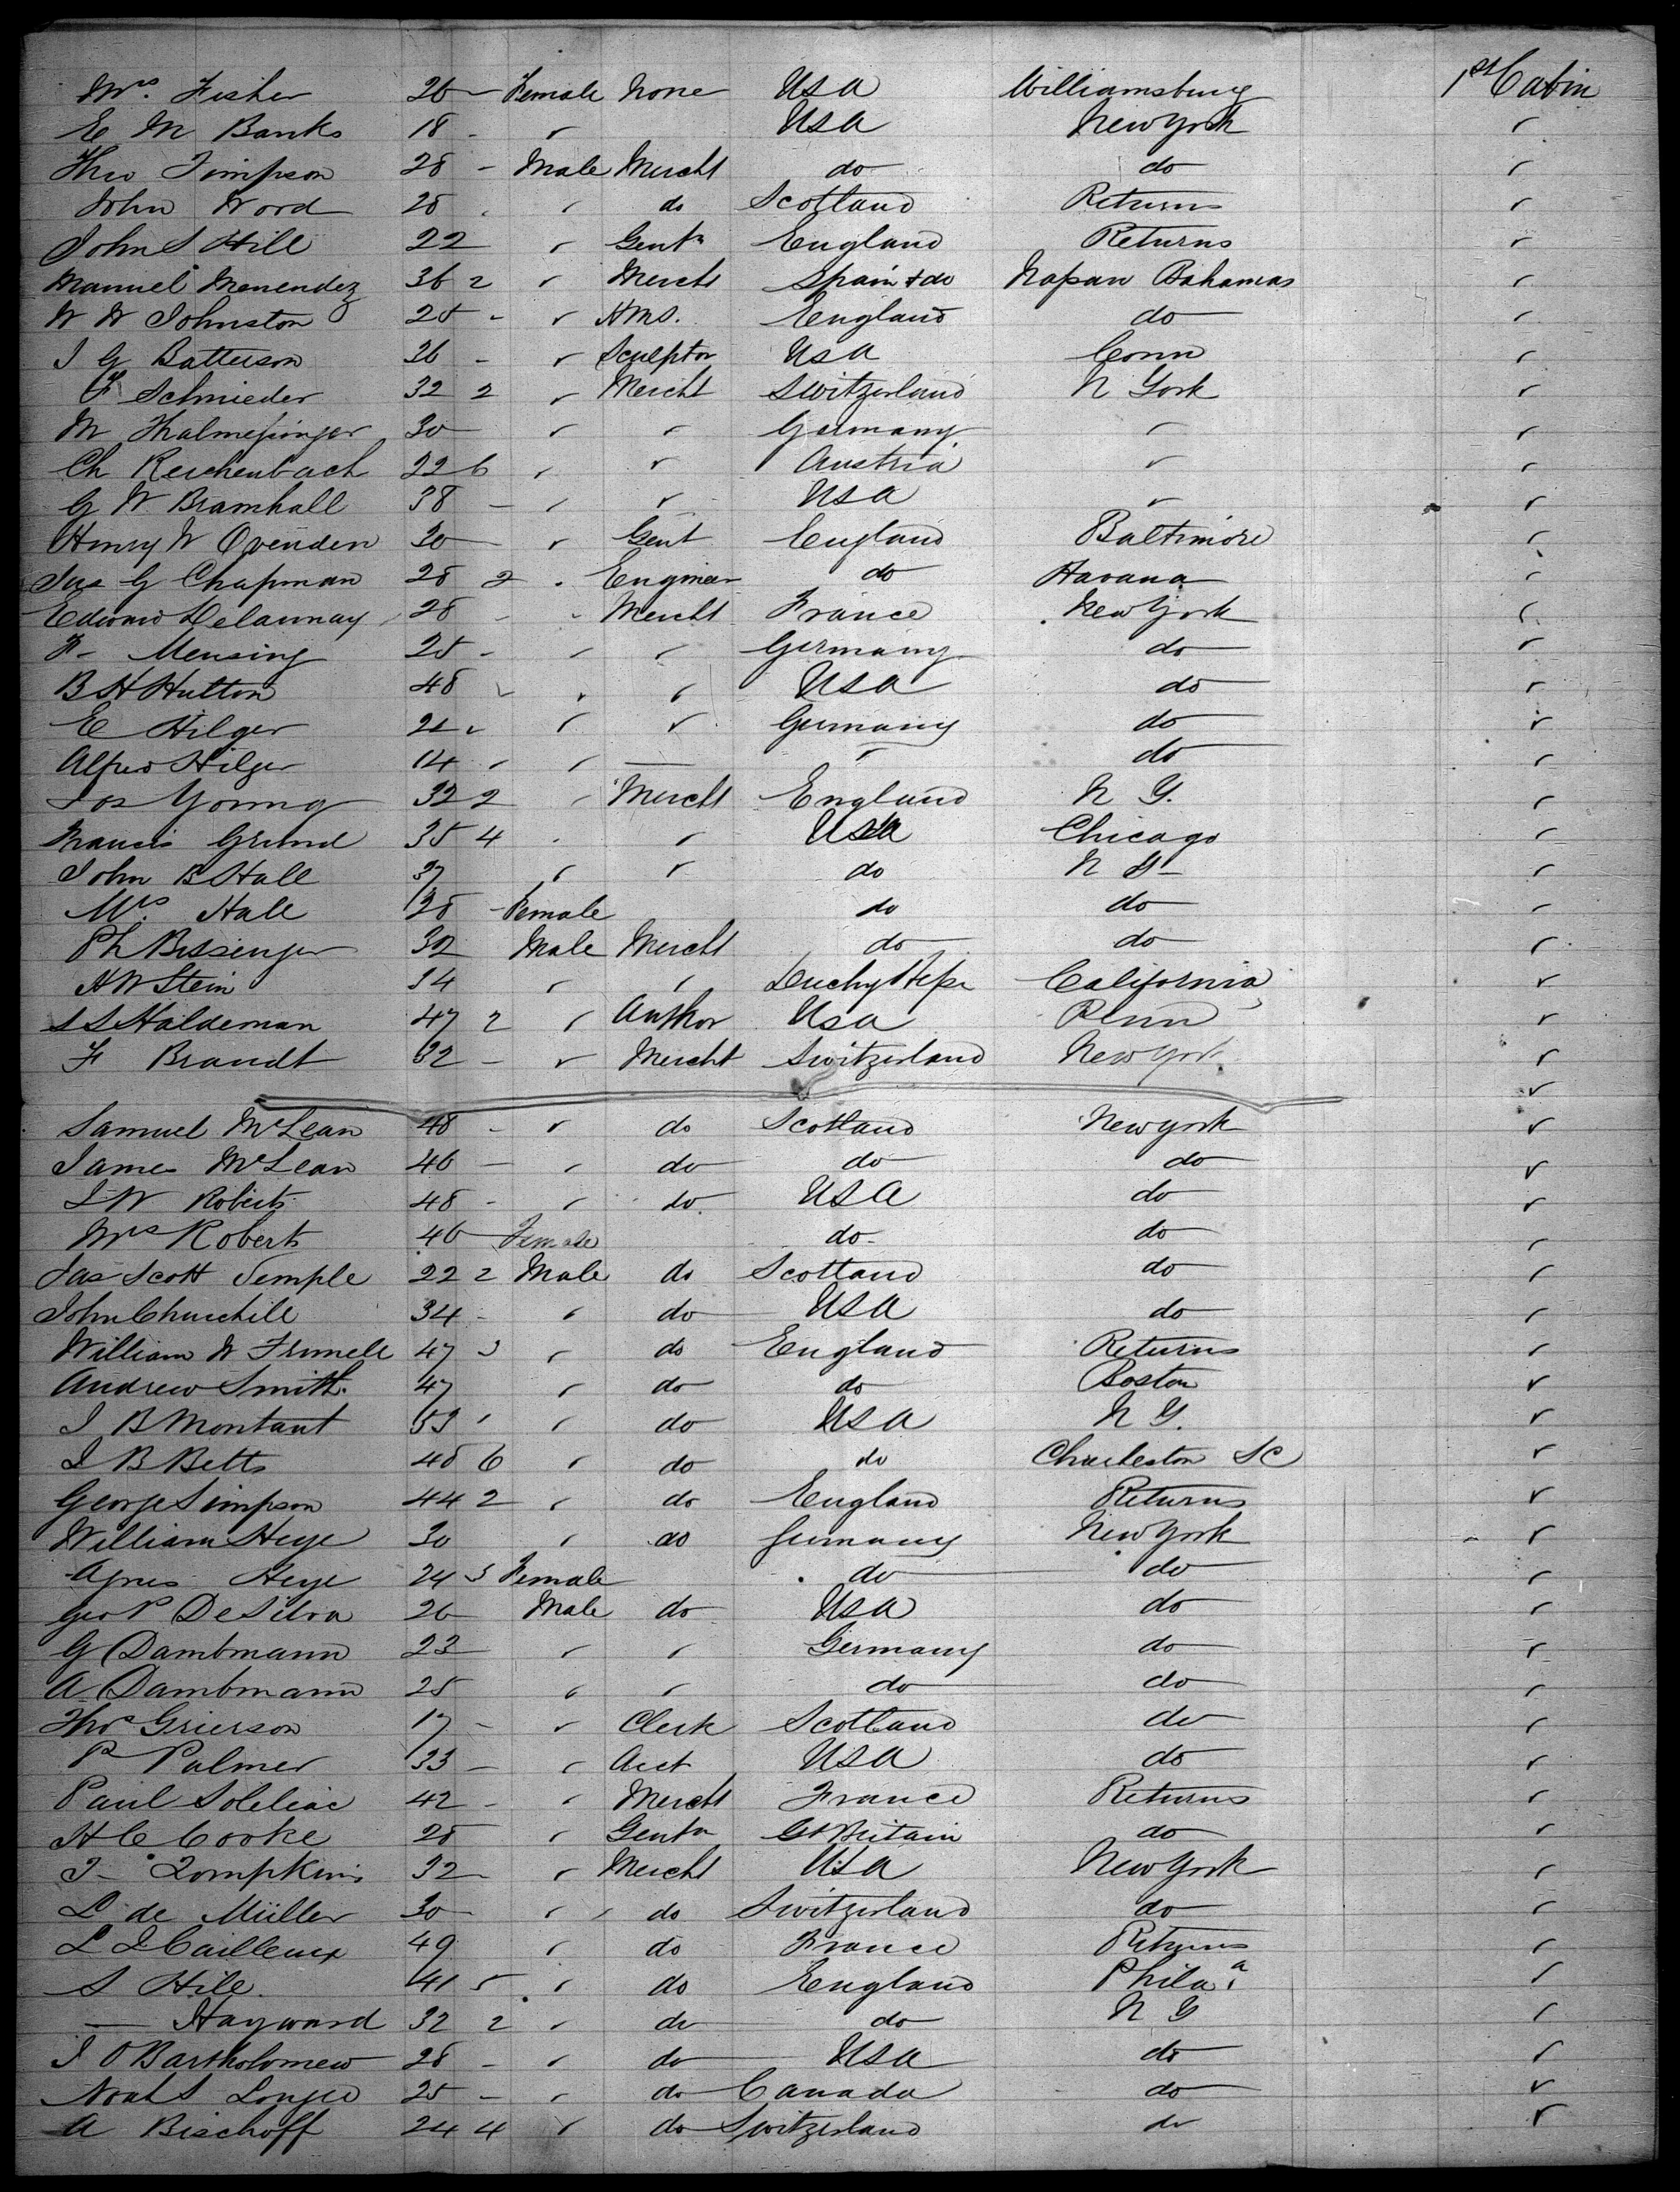 Mrs. Fisher 26 – Female None USA Williamsburg 1st Cabin
E M Banks 18 - ✓ USA New York ✓
Theo Timpson 28 - Male Mercht do do ✓
John Word 28 ✓ do Scotland Returns ✓
John S Hill 22 ✓ Gentn England Returns ✓
Manuel Menendez 36 2 ✓ Mercht Spain + do Nassau Bahamas ✓
W W Johnston 25 - ✓ HMS. England do ✓
J G Batterson 36 - ✓ Sculptor USA Conn ✓
F Schnieder 32 2 ✓ Mercht Switzerland N York ✓
M Thalmessinger 30 ✓ ✓ Germany ✓ ✓
Ch Reichenbach 22 6 ✓ ✓ Austria ✓ ✓
G W Bramhall 38 – ✓ ✓ USA ✓ ✓
Henry W Ovenden 30 ✓ Gent England Baltimore ✓
Jas G Chapman 28 2 Engineer do Havana ✓
Edward Delaunay 28 - - Mercht France New York ✓
F- Mensing 25 - ✓ ✓ Germany do ✓
B H Hutton 48 ✓ ✓ ✓ USA do ✓
E Hilger ✓ ✓ Germany do ✓
Alfred Hilger 14 ✓ ✓ — ✓ do ✓
Jos Young 32 2 ✓ Mercht England N Y. ✓
Francis Grund 35 4 ✓ USA Chicago ✓
John B Hall 37 ✓ ✓ do N Y- ✓
Mrs. Hall 28 - Female do do ✓
Ph Bissenger 32 Male Mercht do do ✓
H W Stein 34 ✓ ✓ Duchy Hesse California ✓
S S Haldeman 47 2 ✓ Author USA Penn ✓
F Brandt 32 – ✓ Mercht Switzerland New York ✓
Samuel McLean 48 - ✓ do Scotland New york ✓
James McLean 46 – ✓ do do do ✓
J W Roberts 48 - ✓ do USA do ✓
Mrs Roberts 40 Female do do ✓
Jas Scott Semple 22 2 Male do Scotland do ✓
John Churchill 34 - ✓ do USA do ✓
William W 47 ✓ do England Returns ✓
Andrew Smith. 47 ✓ do do Boston ✓
J B Montant 53 ✓ ✓ do USA N Y. ✓
J B Betts 6 ✓ do do Charleston SC ✓
George Simpson 44 2 ✓ do England Returns ✓
William Heye 30 ✓ do Germany New York ✓
Agnes Heye 24 Female do do ✓
Geo P DeSilva 26 Male do USA do ✓
G Dambmann 23 ✓ ✓ Germany do ✓
A Dambmann 25 ✓ ✓ do do ✓
Thos Grierson 17 - ✓ Clerk Scotland do ✓
P Palmer 33 – ✓ Acct USA do ✓
Paul Soleliac 42 - ✓ Mercht France Returns ✓
H C Cooke 28 ✓ Gentn Gt Britain do ✓
J- Tompkins 32 ✓ Mercht USA New York ✓
L de Müller 30 ✓ ✓ do Switzerland do ✓
L J Cailleux 49 ✓ do France Returns ✓
S Hill. 41 5 ✓ do England Phila. ✓
— Hayward 32 2 ✓ do do N Y ✓
J O Bartholomew 28 - ✓ do USA do ✓
Noah S 25 – ✓ do Canada do ✓
A Bischoff 24 4 ✓ do Switzerland do ✓